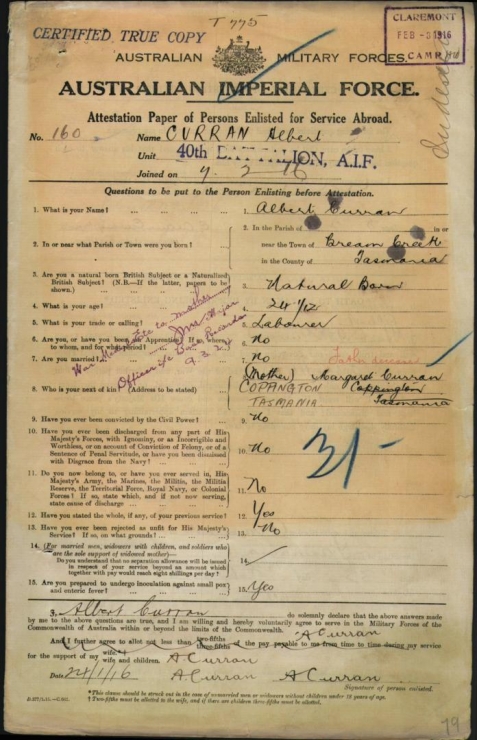 T 775
CERTIFIED TRUE COPY
CLAREMONT
FEB - 1916
CAMP
AUSTRALIAN MILITARY FORCES.
AUSTRALIAN IMPERIAL FORCE.
Attestation Paper of Persons Enlisted for Service Abroad.
No. 160 Name CURRAN Albert
Unit 40th BATTALION, A.I.F.
Joined on
Questions to be put to the Person Enlisting before Attestation.
1. What is your Name? 1. Albert Curran
2. In or near what Parish or Town were you born? 2. In the Parish of in or
near the Town of Bream Creek
in the County of Tasmania
3. Are you a natural born British Subject or a Naturalised
British Subject? (N.B.—If the latter, papers to be
shown.) 3. Natural Born
4. What is your age? 4. 24 1/12
5. What is your trade or calling? 5. Labourer
6. Are you, or have you been, an Apprentice? If so, where,
to whom, and for what period? 6. No
7. Are you married? 7. No
8. Who is your next of kin? (Address to be stated) 8. (Mother) Margaret Curran
COPPINGTON Coppington
TASMANIA Tasmania
War
Officer i/c Base Records
9. Have you ever been convicted by the Civil Power? 9. No
10. Have you ever been discharged from any part of His
Majesty's Forces, with Ignominy, or as Incorrigible and
Worthless, or on account of Conviction of Felony, or of a
Sentence of Penal Servitude, or have you been dismissed
with Disgrace from the Navy? 10. No
3/-
11. Do you now belong to, or have you ever served in, His
Majesty's Army, the Marines, the Militia, the Militia
Reserve, the Territorial Force, Royal Navy, or Colonial
Forces? If so, state which, and if not now serving,
state cause of discharge 11. No
12. Have you stated the whole, if any, of your previous service? 12. Yes
13. Have you ever been rejected as unfit for His Majesty's
Service? If so, on what grounds? 13. No
14. (For married men, widowers with children, and soldiers who
are the sole support of widowed mother)—
Do you understand that no separation allowance will be issued
in respect of your service beyond an amount which
together with pay would reach eight shillings per day? 14.
15. Are you prepared to undergo inoculation against small pox
and enteric fever? 15. Yes
I, Albert Curran do solemnly declare that the above answers made
by me to the above questions are true, and I am willing and hereby voluntarily agree to serve in the Military Forces of the
Commonwealth of Australia within or beyond the limits of the Commonwealth.
A Curran
And I further agree to allot not less than two-fifths three-fifths of the pay payable to me from time to time during my service
for the support of my wife. wife and children. A Curran
Date 24/1/16 A. Curran A Curran
Signature of person enlisted.
*This clause should be struck out in the case of unmarried men or widowers without children under 18 years of age.
†Two-fifths must be allotted to the wife, and if there are children three-fifths must be allotted.
79